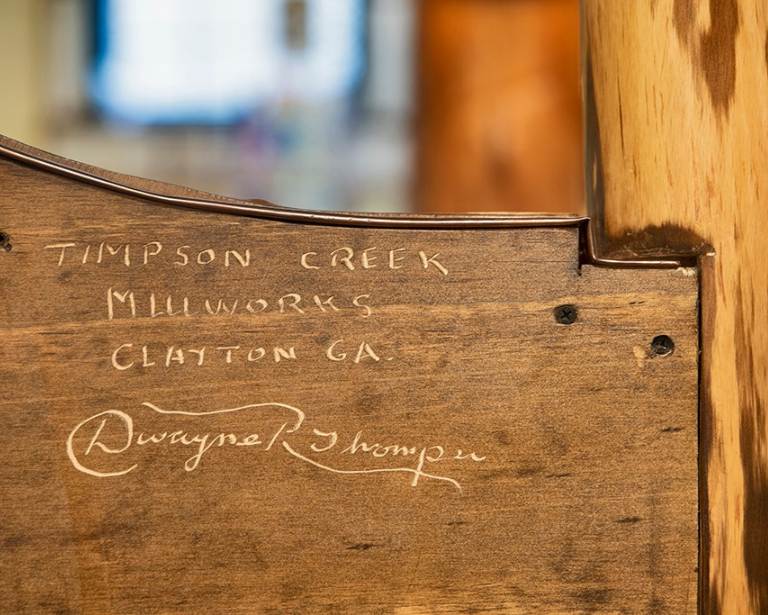 TIMPSON CREEK
MILLWORKS
CLAYTON GA.
Dwayne R Thompson